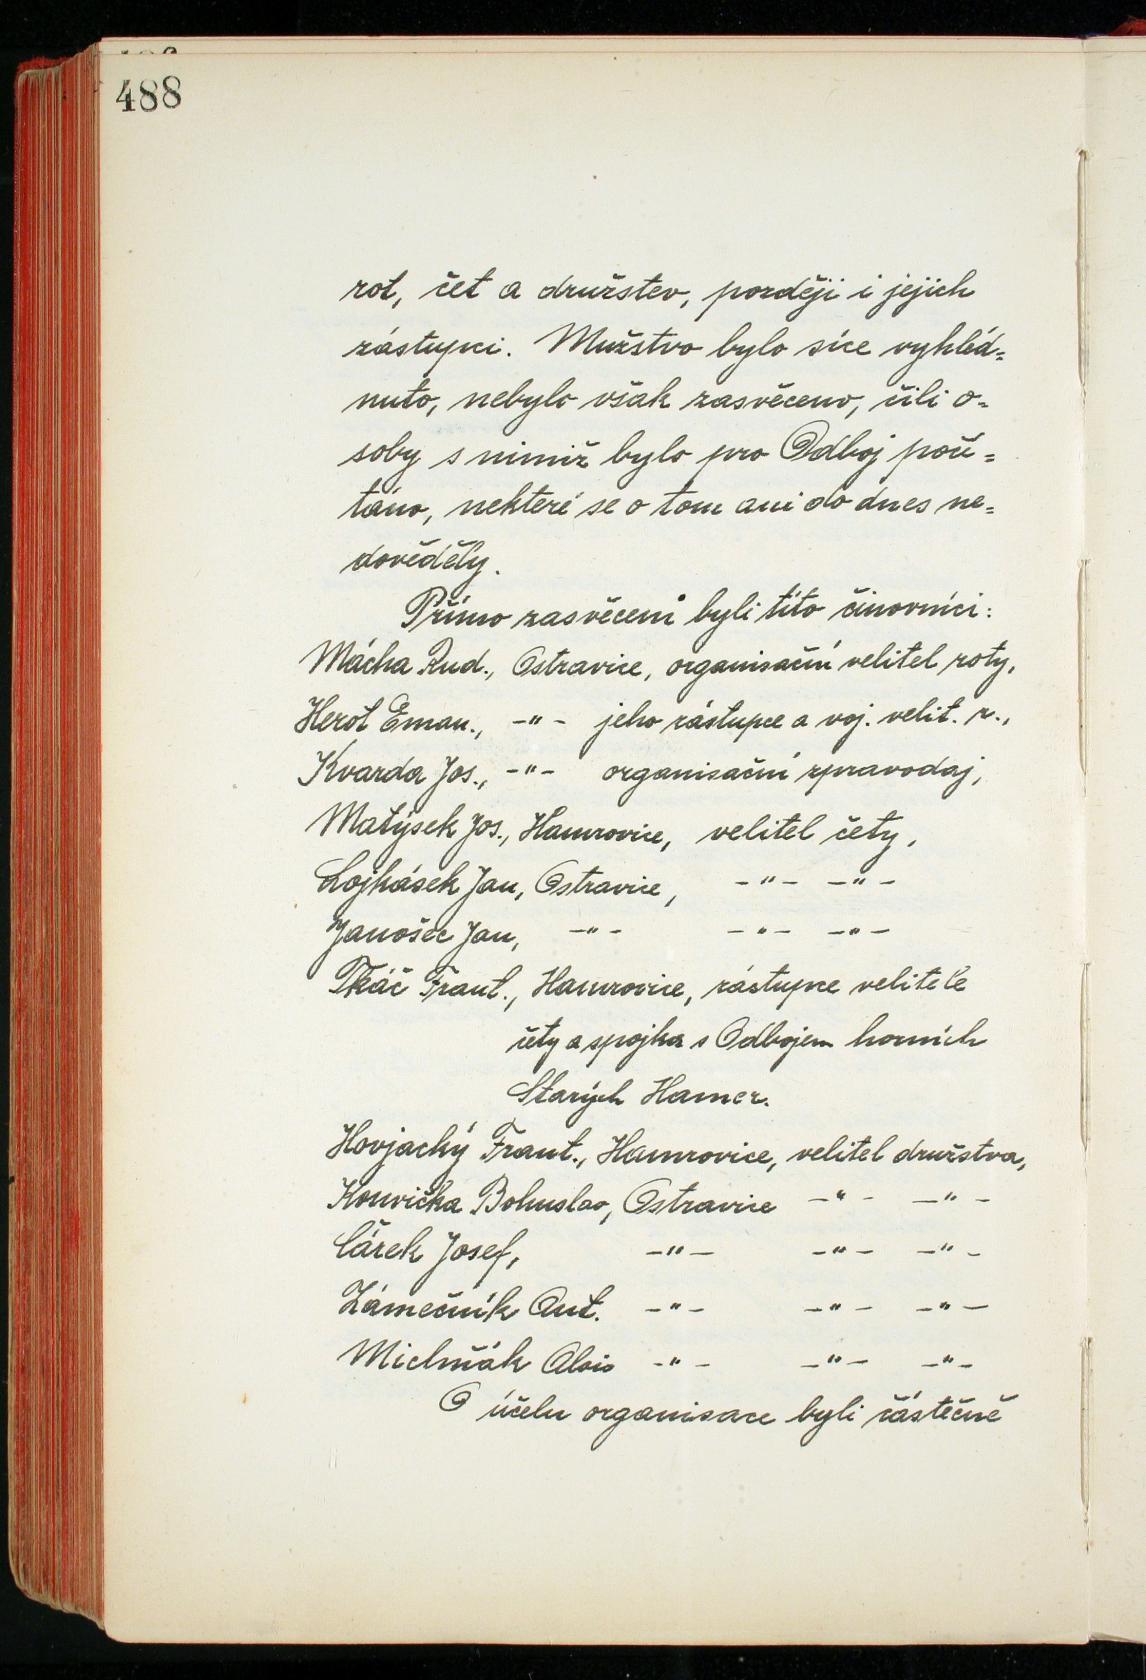 488
rot, čet a družstev, později i jejich
zástupci. Mužstvo bylo sice vyhléd=
nuto, nebylo však zasvěceno, čili o=
soby s nimiž bylo pro Odboj počí=
táno, nekteré se o tom ani do dnes ne=
dověděly.
Přímo zasvěceni byli tito činovníci:
Mácha Rud., Ostravice, organisační velitel roty,
Herot Eman., -"- jeho zástupce a voj. velit. r.,
Kvarda Jos., -"- organisační zpravodaj,
Matýsek Jos., Hamrovice, velitel čety,
Lojkásek Jan, Ostravice, -"- -"-
Janošec Jan, -"- -"- -"-
Tkáč Frant., Hamrovice, zástupce velitele
čety a spojka s Odbojem horních
Starých Hamer.
Hovjacký Frant., Hamrovice, velitel družstva,
Konvička Bohuslav, Ostravice -"- -"-
Cárek Josef, -"- -"- -"-
Zámečník Ant. -"- -"- -"-
Michňák Alois -"- -"- -"-
O účelu organisace byli částečně